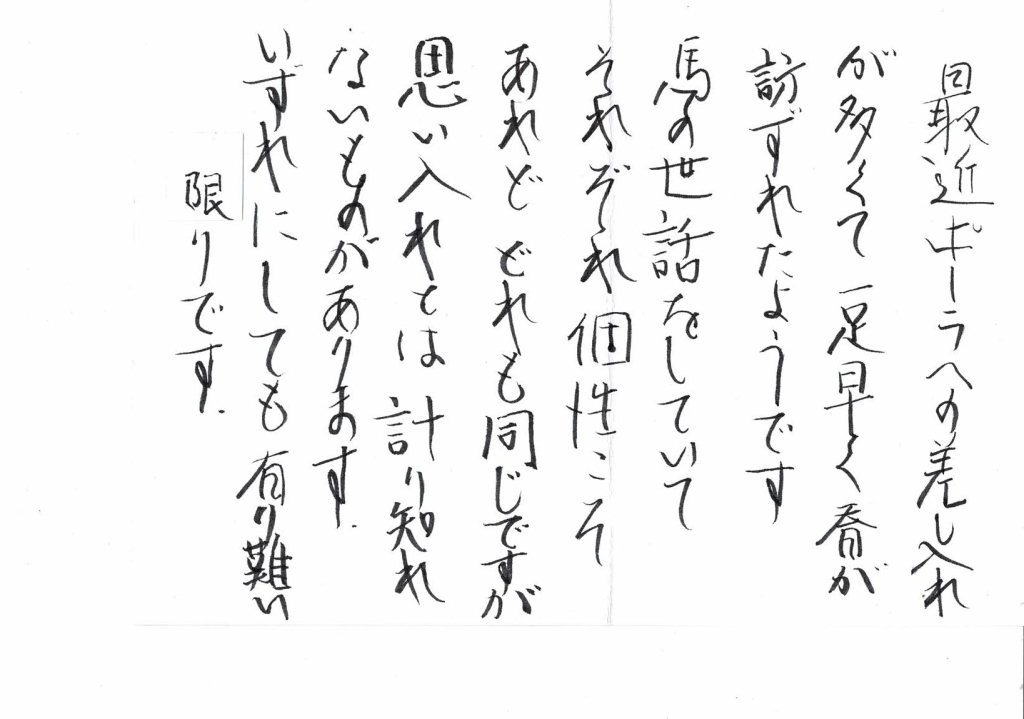 最近ポーラへの差し入れ
が多くて一足早く春が
訪ずれたようです
馬の世話をしていて
それぞれ個性こそ
あれど どれも同じですが
思い入れとは計り知れ
ないものがあります.
いずれにしても有り難い
限りです.